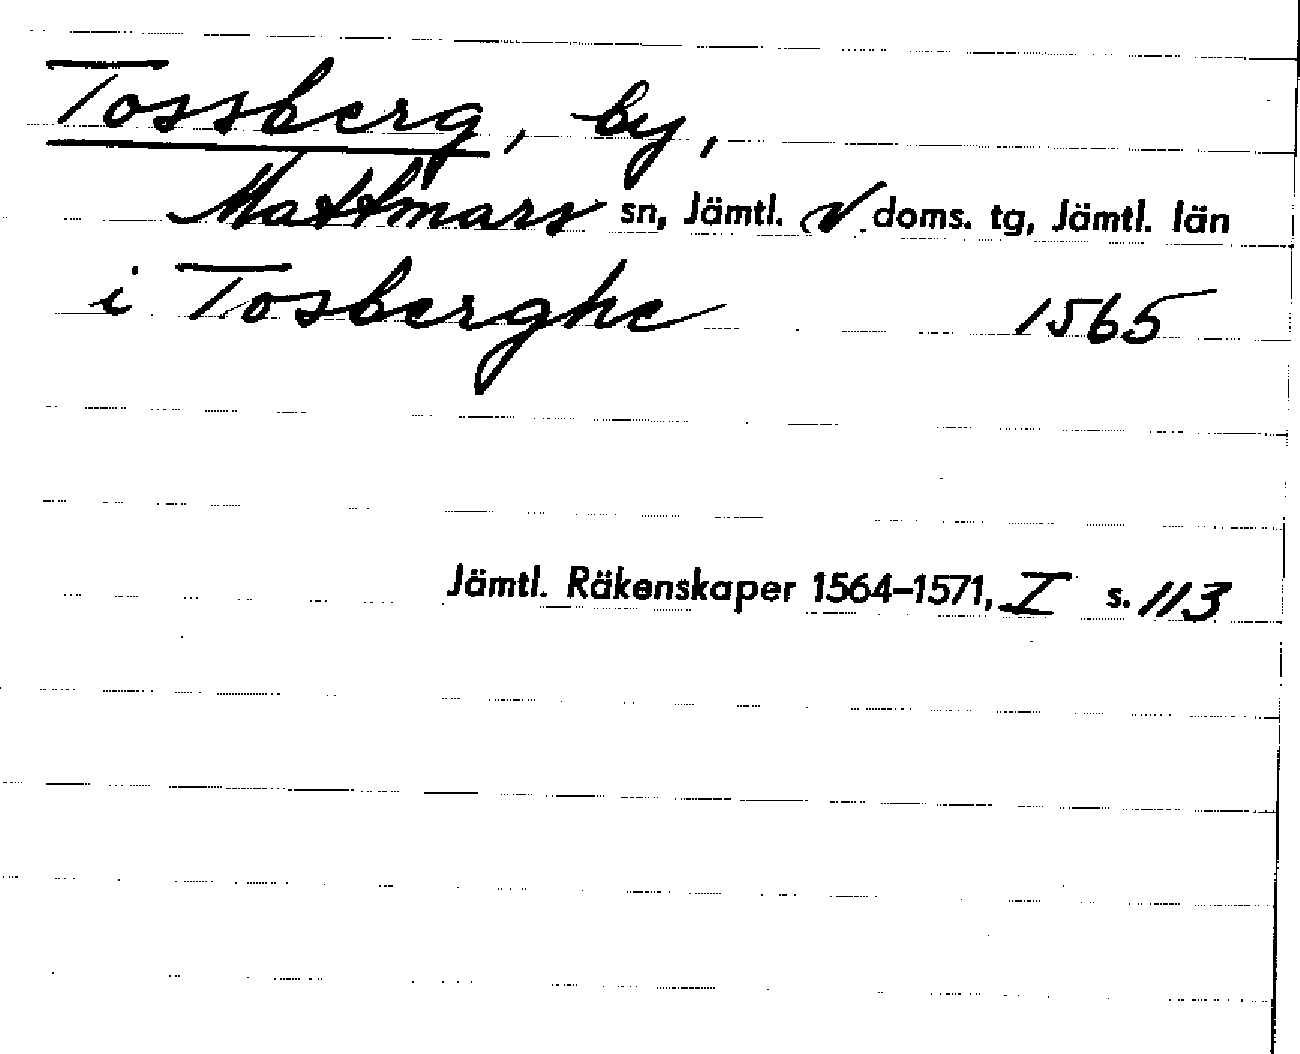 Tossberg, by,
Mattmars sn, Jämtl. v doms. tg, Jämtl. län
i Tosberghe 1565
Jämtl. Räkenskaper 1564–1571, I s. 113